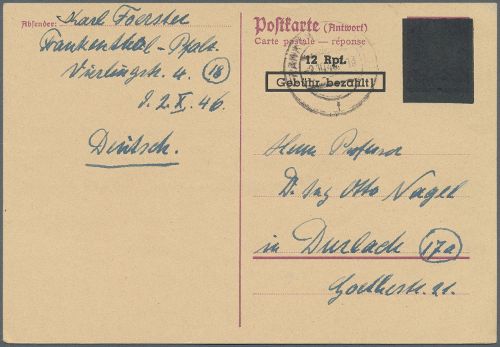 Absender: Karl Foerster
Frankenthal-Pfalz
4. (18)
d. 2. X. 46
Deutsch.
Postkarte (Antwort)
Carte postale — réponse
12 Rpf.
Gebühr bezahlt!
Herrn Professor
Dr. Ing Otto Nagel
in Durlach (17a)
Goethestr. 21.